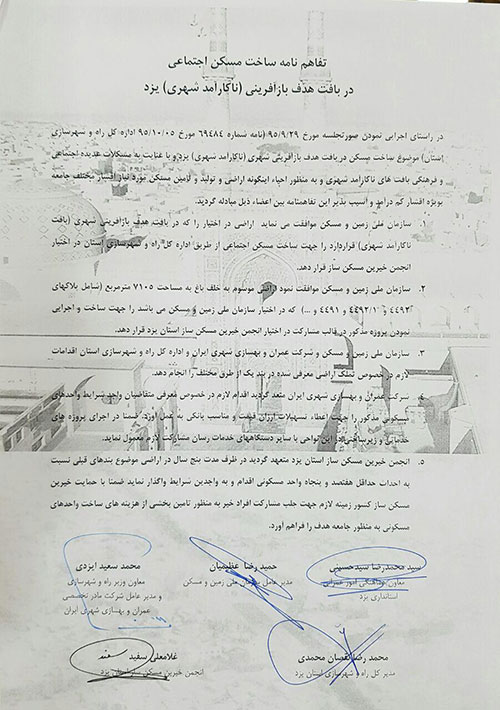 تفاهم نامه ساخت مسکن اجتماعی
در بافت هدف بازآفرینی (ناکارآمد شهری) یزد
در راستای اجرایی نمودن صورتجلسه مورخ ۹۵/۹/۲۹ (نامه شماره ۶۹۴۸۴ مورخ ۹۵/۱۰/۰۵ اداره کل راه و شهرسازی
استان) موضوع ساخت مسکن در بافت هدف بازآفرینی شهری (ناکارآمد شهری) یزد و با عنایت به مشکلات عدیده اجتماعی
و فرهنگی بافت های ناکارآمد شهری و به منظور احیاء اینگونه اراضی و تولید و تامین مسکن مورد نیاز اقشار مختلف جامعه
بویژه اقشار کم درآمد و آسیب پذیر این تفاهمنامه بین اعضاء ذیل مبادله گردید.
۱. سازمان ملی زمین و مسکن موافقت می نماید اراضی در اختیار را که در بافت هدف بازآفرینی شهری (بافت
ناکارآمد شهری) قراردارد را جهت ساخت مسکن اجتماعی از طریق اداره کل راه و شهرسازی استان در اختیار
انجمن خیرین مسکن ساز قرار دهد.
۲. سازمان ملی زمین و مسکن موافقت نمود اراضی موسوم به خلف باغ به مساحت ۷۱۰۵ مترمربع (شامل پلاکهای
۴۴۹۲ و ۴۴۹۲/۱ و ۴۴۹۱ و ...) که در اختیار سازمان ملی زمین و مسکن می باشد را جهت ساخت و اجرایی
نمودن پروژه مذکور در قالب مشارکت در اختیار انجمن خیرین مسکن ساز استان یزد قرار دهد.
۳. سازمان ملی زمین و مسکن و شرکت عمران و بهسازی شهری ایران و اداره کل راه و شهرسازی استان اقدامات
لازم در خصوص تملک اراضی معرفی شده در بند یک از طرق مختلف را انجام دهد.
۴. شرکت عمران و بهسازی شهری ایران متعد گردید اقدام لازم در خصوص معرفی متقاضیان واجد شرایط واحدهای
مسکونی مذکور را جهت اعطاء تسهیلات ارزان قیمت و مناسب بانکی به عمل آورد. ضمنا در اجرای پروژه های
خدماتی و زیرساخت در این نواحی با سایر دستگاههای خدمات رسان مشارکت لازم معمول نماید.
۵. انجمن خیرین مسکن ساز استان یزد متعهد گردید در ظرف مدت پنج سال در اراضی موضوع بندهای قبلی نسبت
به احداث حداقل هفتصد و پنجاه واحد مسکونی اقدام و به واجدین شرایط واگذار نماید ضمنا با حمایت خیرین
مسکن ساز کشور زمینه لازم جهت جلب مشارکت افراد خیر به منظور تامین بخشی از هزینه های ساخت واحدهای
مسکونی به منظور جامعه هدف را فراهم آورد.
سید محمدرضا سیدحسینی
معاون هماهنگی امور عمرانی
استانداری یزد
حمید رضا عظیمیان
مدیر عامل سازمان ملی زمین و مسکن
محمد سعید ایزدی
معاون وزیر راه و شهرسازی
و مدیر عامل شرکت مادر تخصصی
عمران و بهسازی شهری ایران
محمد رضا نقصان محمدی
مدیر کل راه و شهرسازی استان یزد
غلامعلی سفید
انجمن خیرین مسکن ساز استان یزد